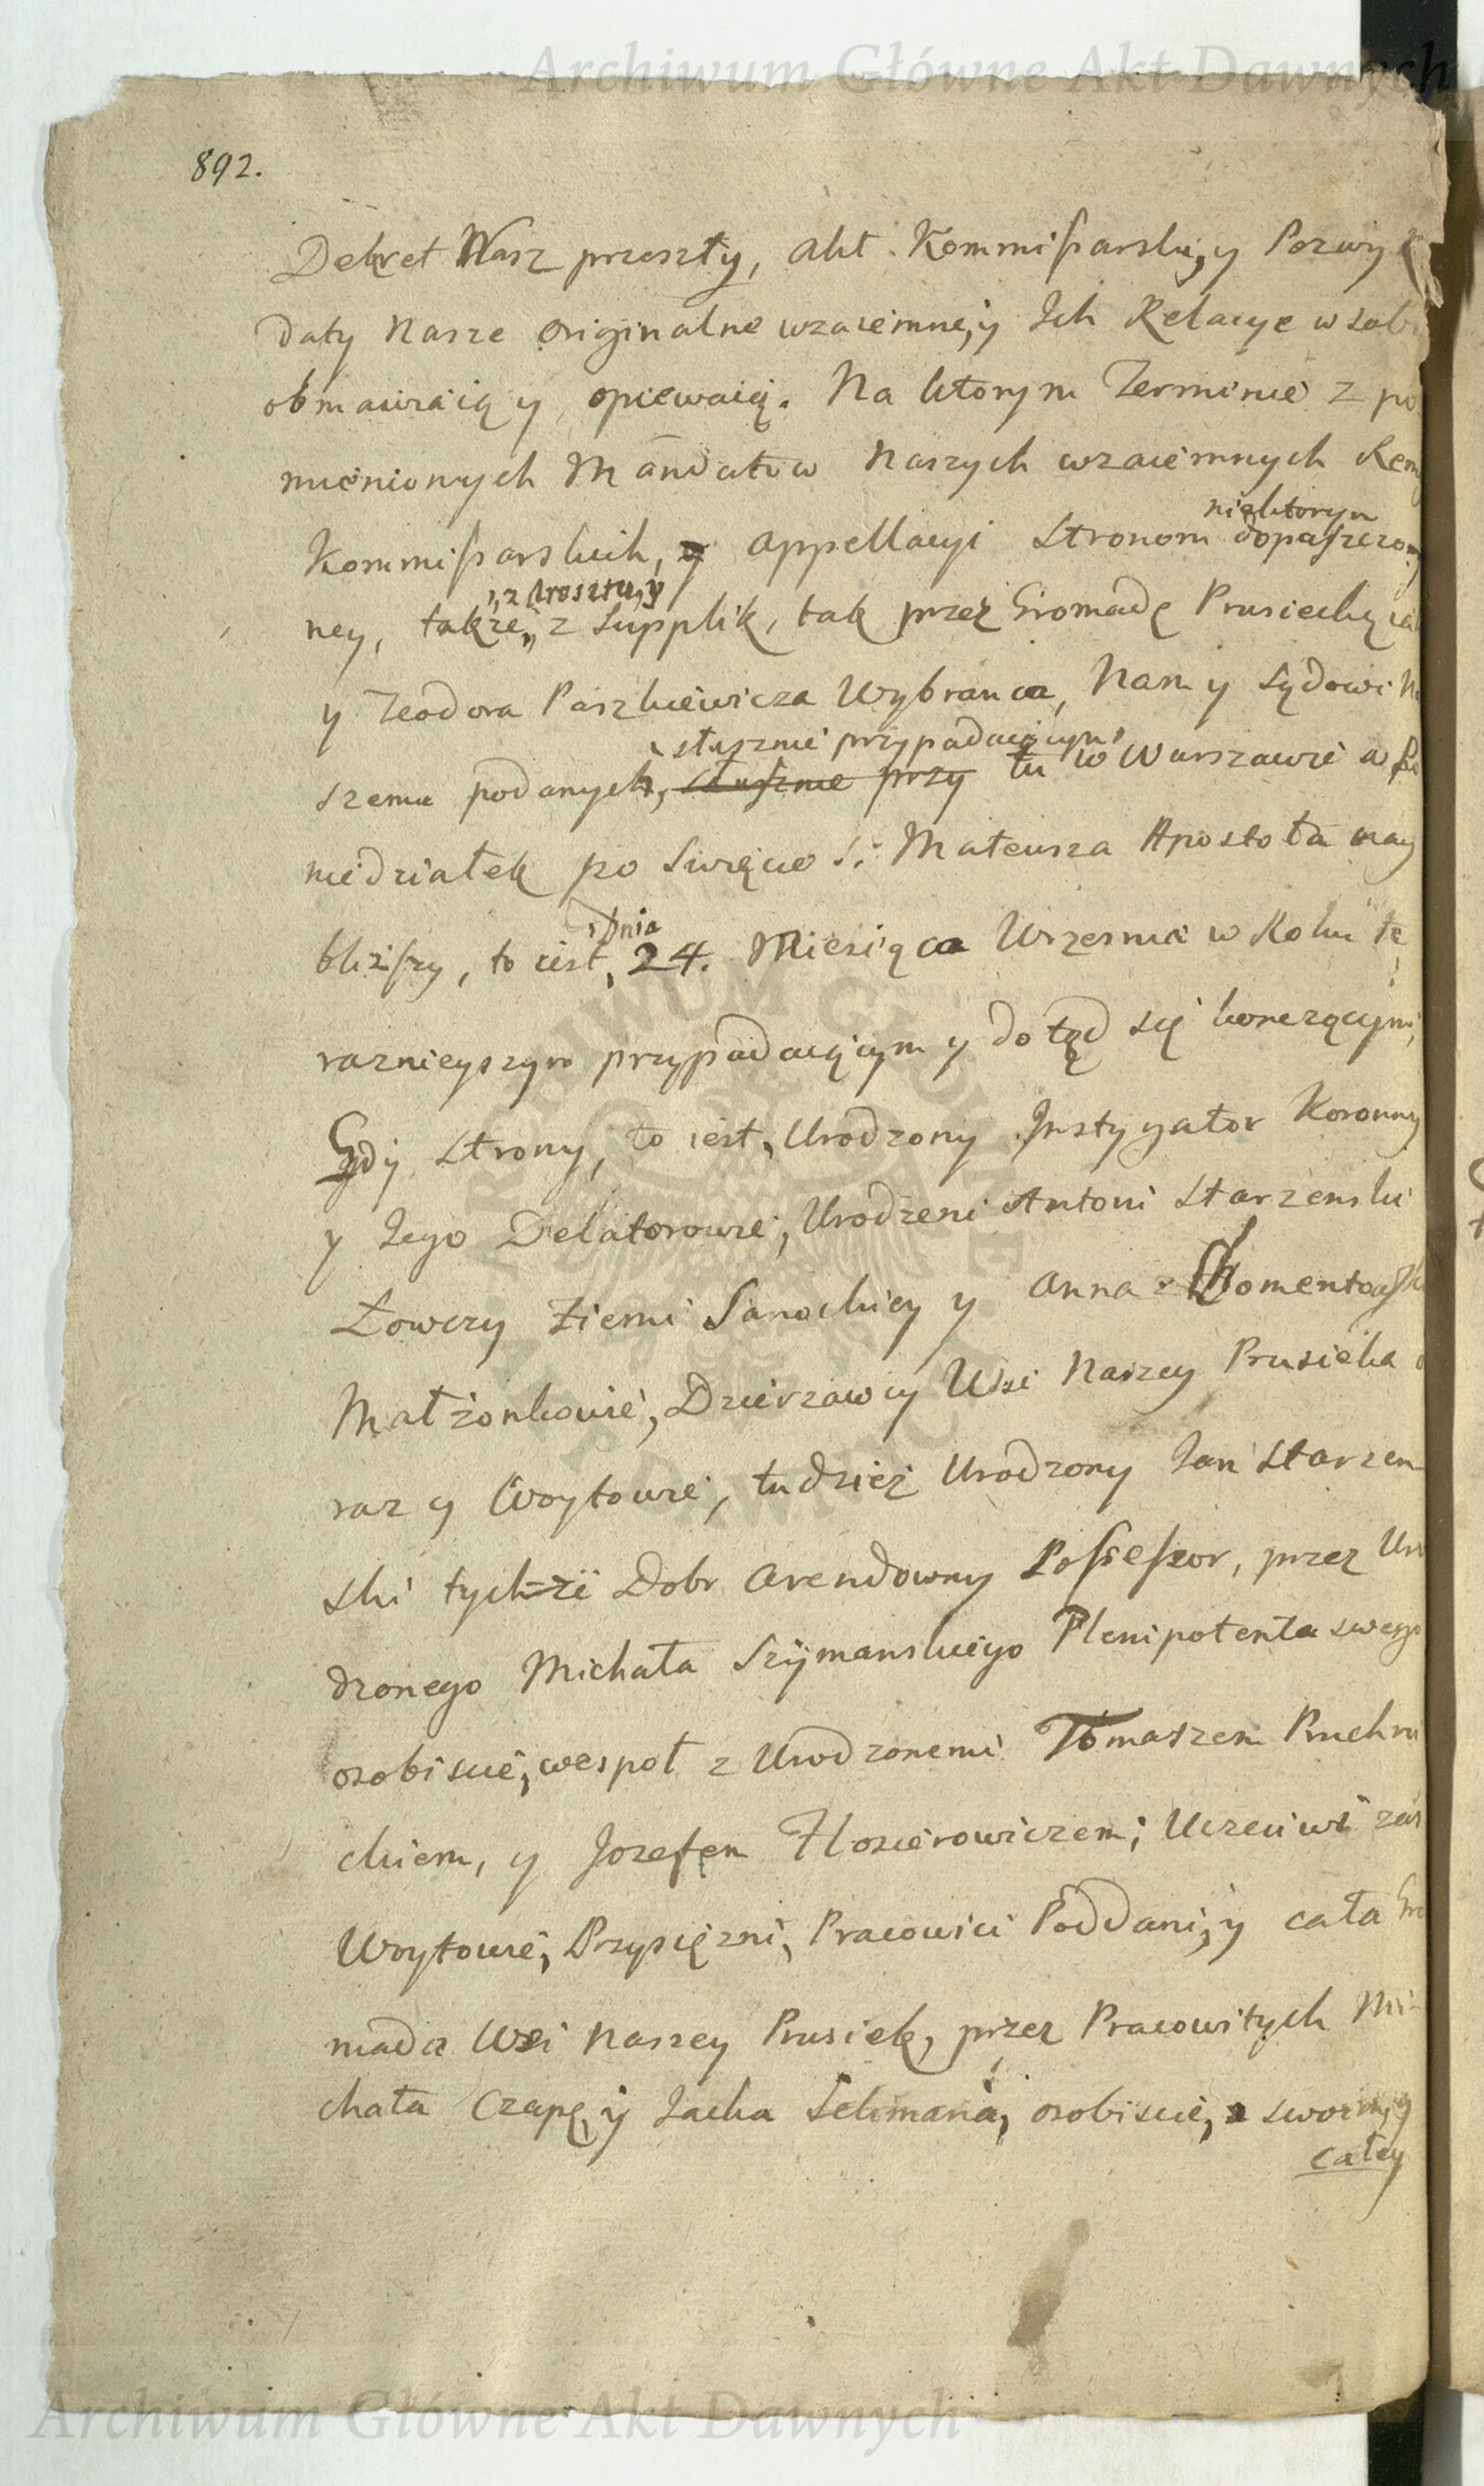 Archiwum Główne Akt Dawnych
892.
Dekret Nasz przeszły, Akt Kommißarski, y Pozwy
daty Nasze originalne wzaiemne, y Ich Relacye w sobi
obmawiaią y opiewaią. Na ktorym Terminie z po
mienionych Mandatow Naszych wzaiemnych Rem
niektorym
Kommißarskich, y Appellacyi Stronom dopuszczo
, z Kosztu, y
ney, także, z Supplik, tak przez Gromadę Prusiecką
y Teodora Paszkiewicza Wybranca, Nam y Sądowi Na
słusznie przypadaiącym
szemu podanych, słusznie przy tu w Warszawie w Po
niedziałek po Swięcie S. Mateusza Apostoła nay
Dnia
bliższy, to iest, 24. Miesiąca Wrzesnia w Roku te
raznieyszym przypadaiącym y dotąd się konczącym,
Gdy Strony, to iest, Urodzony Instygator Koronny
y Iego Delatorowie, Urodzeni Antoni Starzenski
Łowczy Ziemi Sanockiey y Anna z
Małżonkowie, Dzierzawcy Wsi Naszey Prusieka o
raz y Woytowie, tudzież Urodzony Ian Starzen
ski tychże Dobr Arendowny Poßeßor, przez Uro
dzonego Michała Szymanskiego Plenipotenta swego
osobiscie, wespoł z Urodzonemi Tomaszem
ckiem, y Jozefem Uczciwi zas
Woytowie, Przysiężni, Pracowici Poddani, y cała Gro
mada Wsi Naszey Prusiek, przez Pracowitych Mi-
chała Czapę, y Iacka Selimana, osobiscie, swoim, y
całey
Archiwum Główne Akt Dawnych